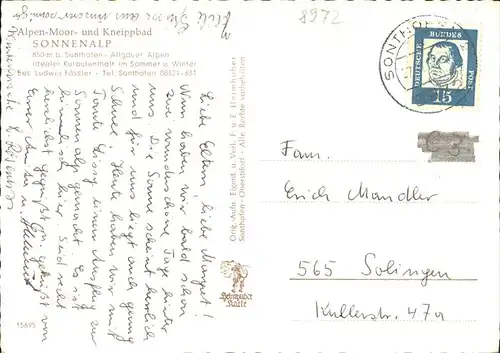 8972
Alpen-Moor- und Kneippbad
SONNENALP
850 m ü. Sonthofen - Allgäuer Alpen
Idealer Kuraufenthalt im Sommer u. Winter
Bes. Ludwig Fässler - Tel. Sonthofen 08321-651
SONTHOFEN
DEUTSCHE BUNDESPOST
15
Liebe Eltern, liebe Margret!
Nun haben wir bald schon
zwei wunderschöne Tage hinter
uns. Die Sonne scheint herrlich
und für uns liegt auch genug
Schnee. Heute haben wir mit
Tante Sissy einen Ausflug zur
Sonnenalp gemacht. Es ist
himmlisch hier. Seid recht
herzlichst gegrüßt von
Orig.-Aufn. Eigent. u. Verl. F. u. E. Heimhuber
Sonthofen-Oberstdorf - Alle Rechte vorbehalten
Heimhuber
Karte
Fam.
Erich Mandler
565 Solingen
Kullerstr. 47a
15695